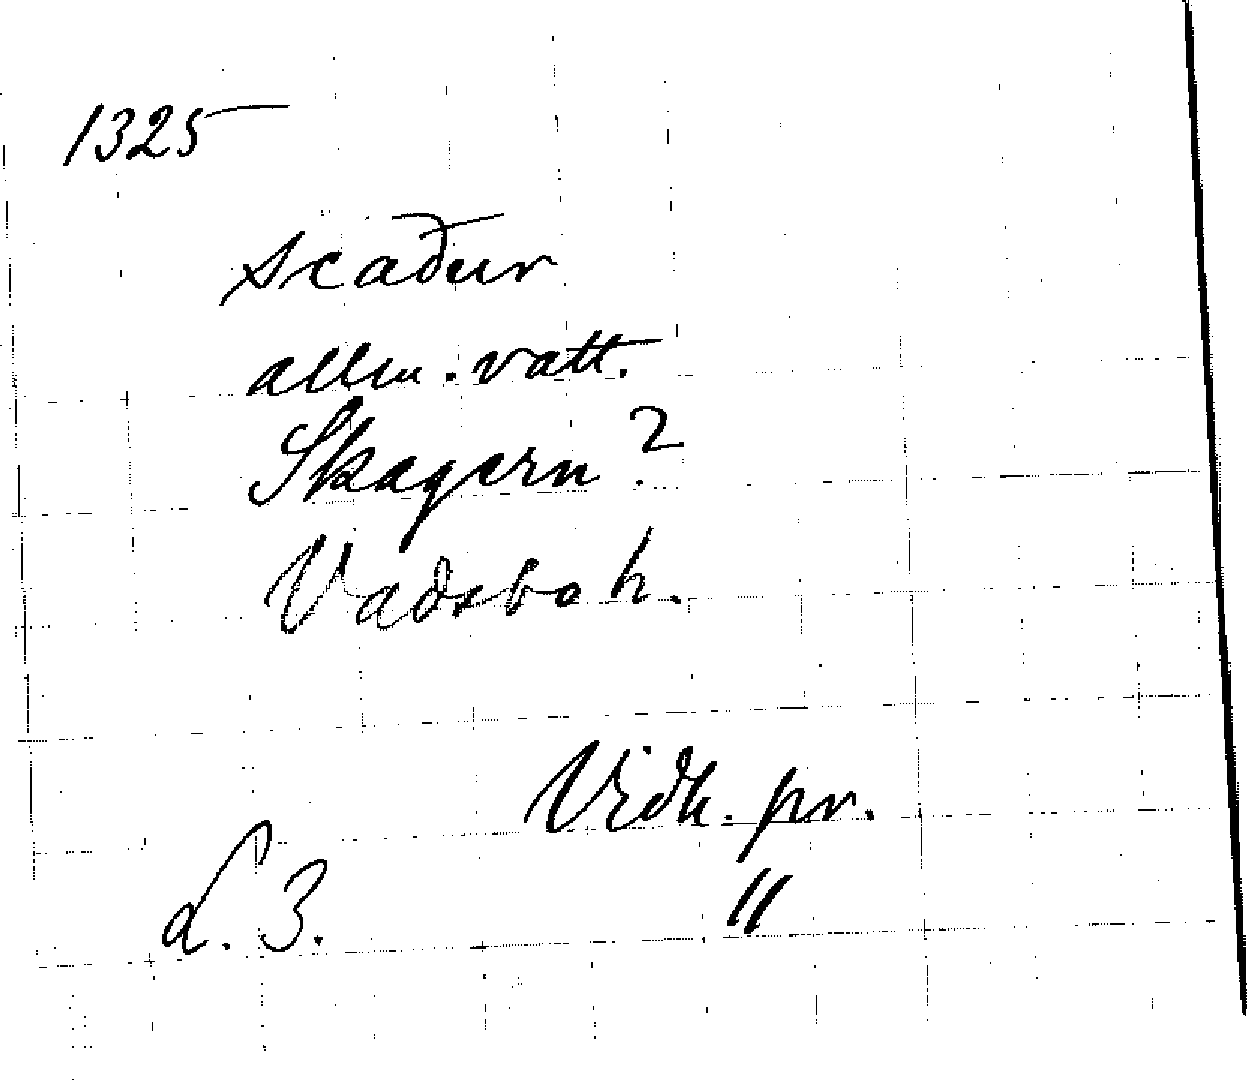 1325
scaður
allm. vatt.
Skagern?
Vadsbo h.
Vidh. pr.
L. 3. "